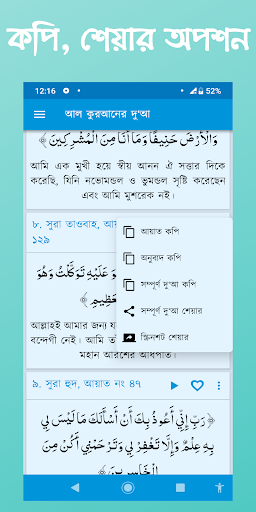 কপি, শেয়ার অপশন
12:16
52%
আল কুরআনের দু'আ
وَالْأَرْضَ حَنِيفًا وَمَا أَنَا مِنَ الْمُشْرِكِينَ ﴾
আমি এক মুখী হয়ে স্বীয় আনন ঐ সত্তার দিকে
করেছি, যিনি নভোমন্ডল ও ভুমন্ডল সৃষ্টি করেছেন
এবং আমি মুশরেক নই।
৮. সুরা তাওবাহ,
১২৯
আয়াত কপি
অনুবাদ কপি
সম্পূর্ণ দু'আ কপি
সম্পূর্ণ দু'আ শেয়ার
স্ক্রিনশট শেয়ার
عَلَيْهِ تَوَكَّلْتُ وَهُوَ
আল্লাহই আমার জন্য
বন্দেগী নেই। আমি
মহান আরশের অধিপতি।
৯. সুরা হুদ, আয়াত নং ৪৭
﴿ رَبِّ إِنِّي أَعُوذُ بِكَ أَنْ أَسْأَلَكَ مَا لَيْسَ لِي
بِهِ عِلْمٌ وَإِلَّا تَغْفِرْ لِي وَتَرْحَمْنِي أَكُنْ مِنَ
الْخَاسِرِينَ ﴾